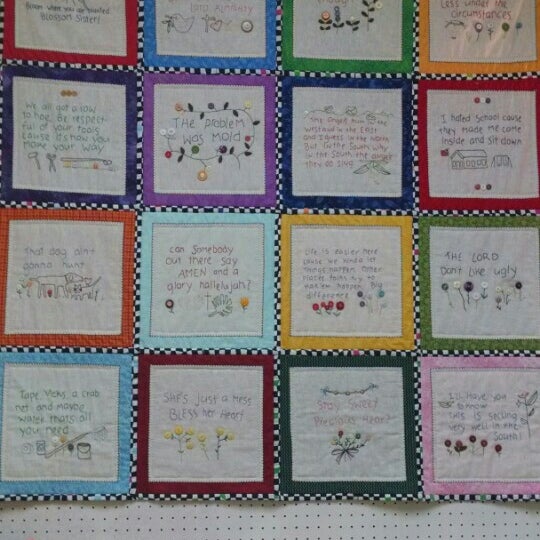 Bloom where you are planted
Blossom Sister!
Less under the
circumstances
We all got a row
to hoe. Be respect-
ful of your tools
cause it's how you
make your way
The problem
was mold
in the East
But in the South why
in the South the
they do sing
I hated School cause
they made me come
inside and sit down
That dog ain't
gonna hunt
can somebody
out there say
AMEN and a
glory hallelujah?
Life is easier here
cause we kinda let
things happen. Other
places folks try to
make em happen. Big
difference
THE LORD
Don't like ugly
Tape, Vicks, a crab
net and maybe
water thats all
you need
SHE'S just a mess
BLess her Heart
Stay Sweet
Precious Heart
I'll have you
to know
this is selling
very well in the
South!